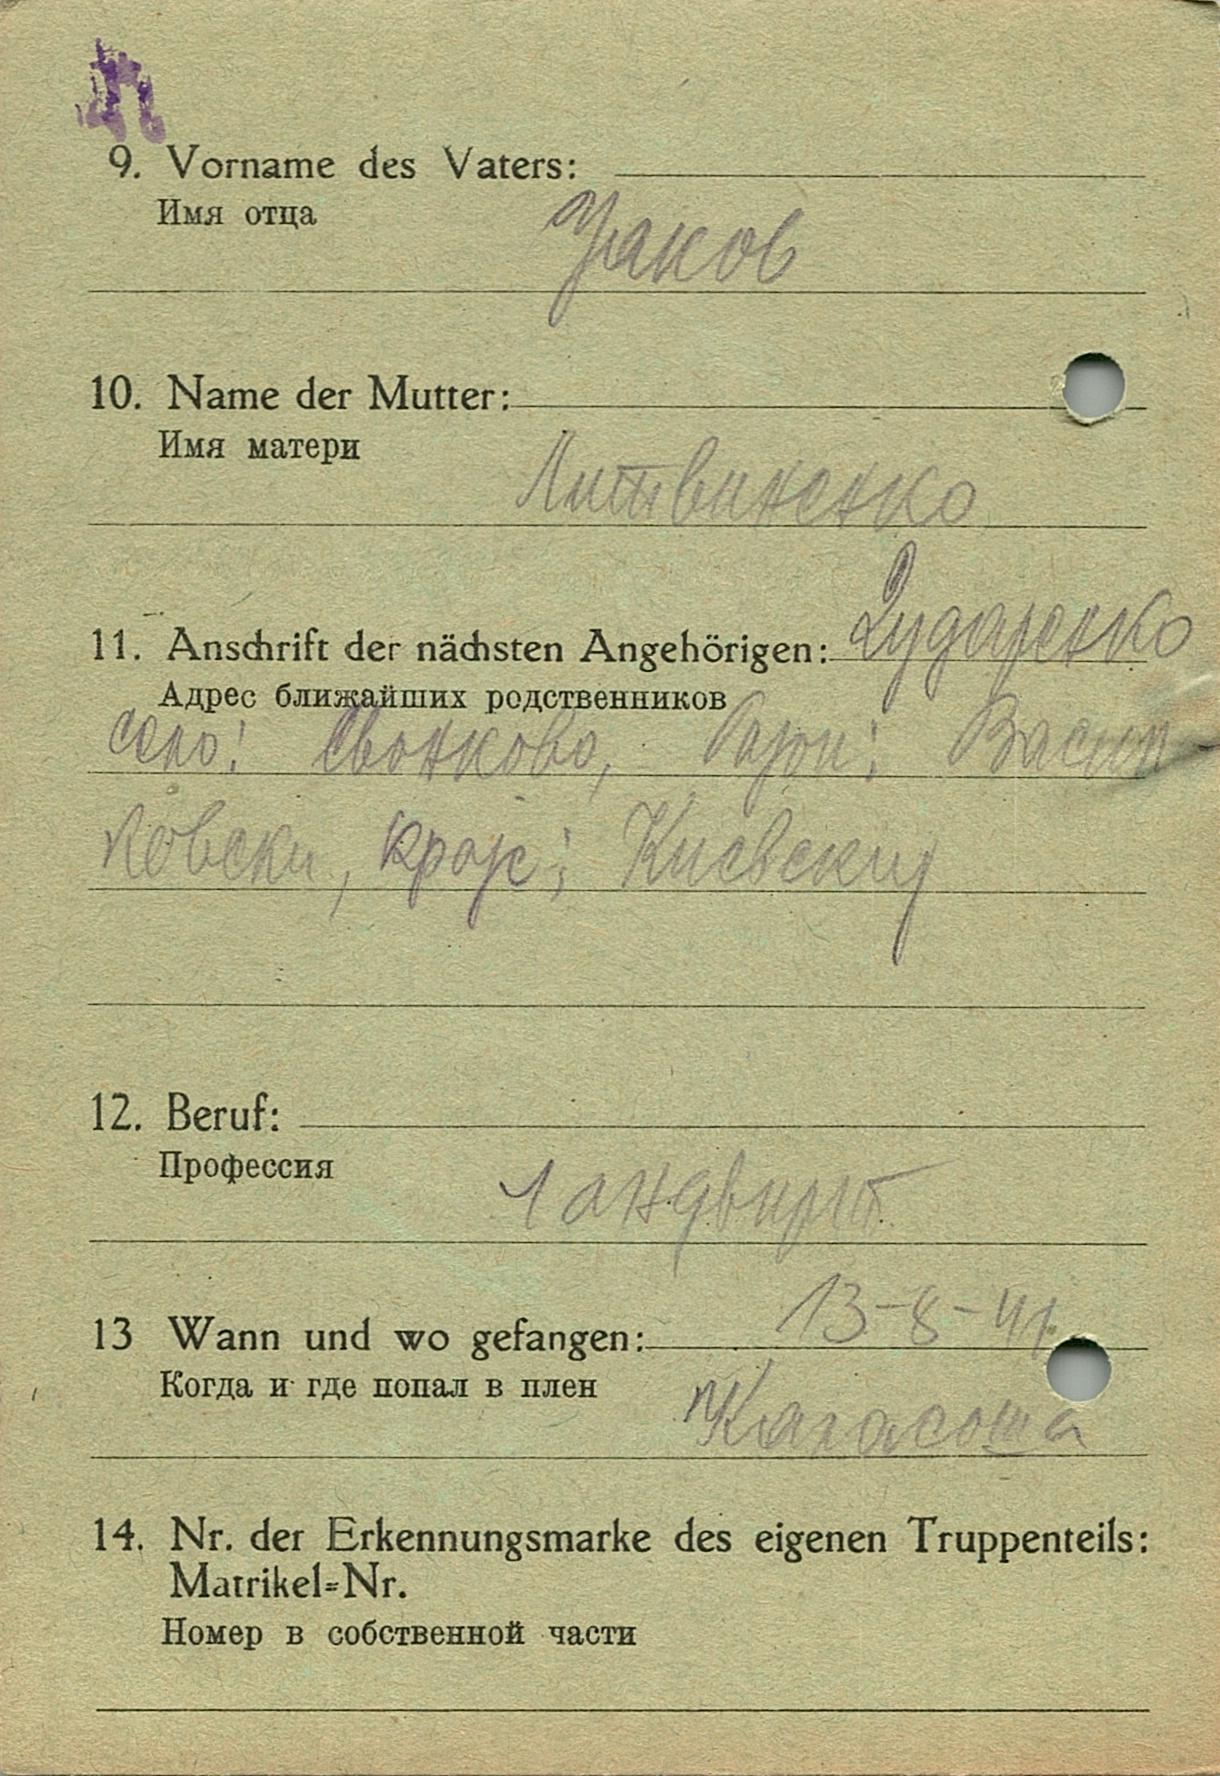 9. Vorname des Vaters:
Имя отца
Јаков
10. Name der Mutter:
Имя матери
Литвиненко
11. Anschrift der nächsten Angehörigen: Дударенко
Адрес ближайших родственников
село: Рајон: Васил
ковски, краје: Киевскиј
12. Beruf:
Профессия
Ландвирт
13 Wann und wo gefangen: 13-8-41.
Когда и где попал в плен
14. Nr. der Erkennungsmarke des eigenen Truppenteils:
Matrikel=Nr.
Номер в собственной части